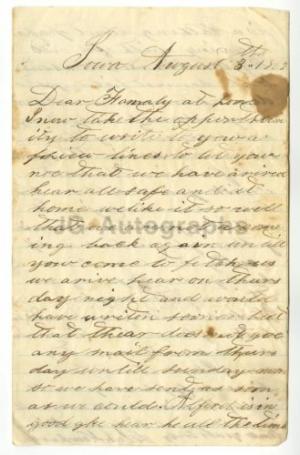 Iowa August 3th 18
Dear Famaly at home
I now take the oppertun
ity to write to you a
fiew lines to let you
no that we have arived
hear all safe and at
home we like it so well
that we are not a com
ing back again untill
you come to fetch us
we arive hear on thurs
day night and would
have writon sooner but
that thear does not go
any mail from thurs
day untill sunday
so we have send as soon
as we could Alfred is in
good glee hear he all the time
JG Autographs